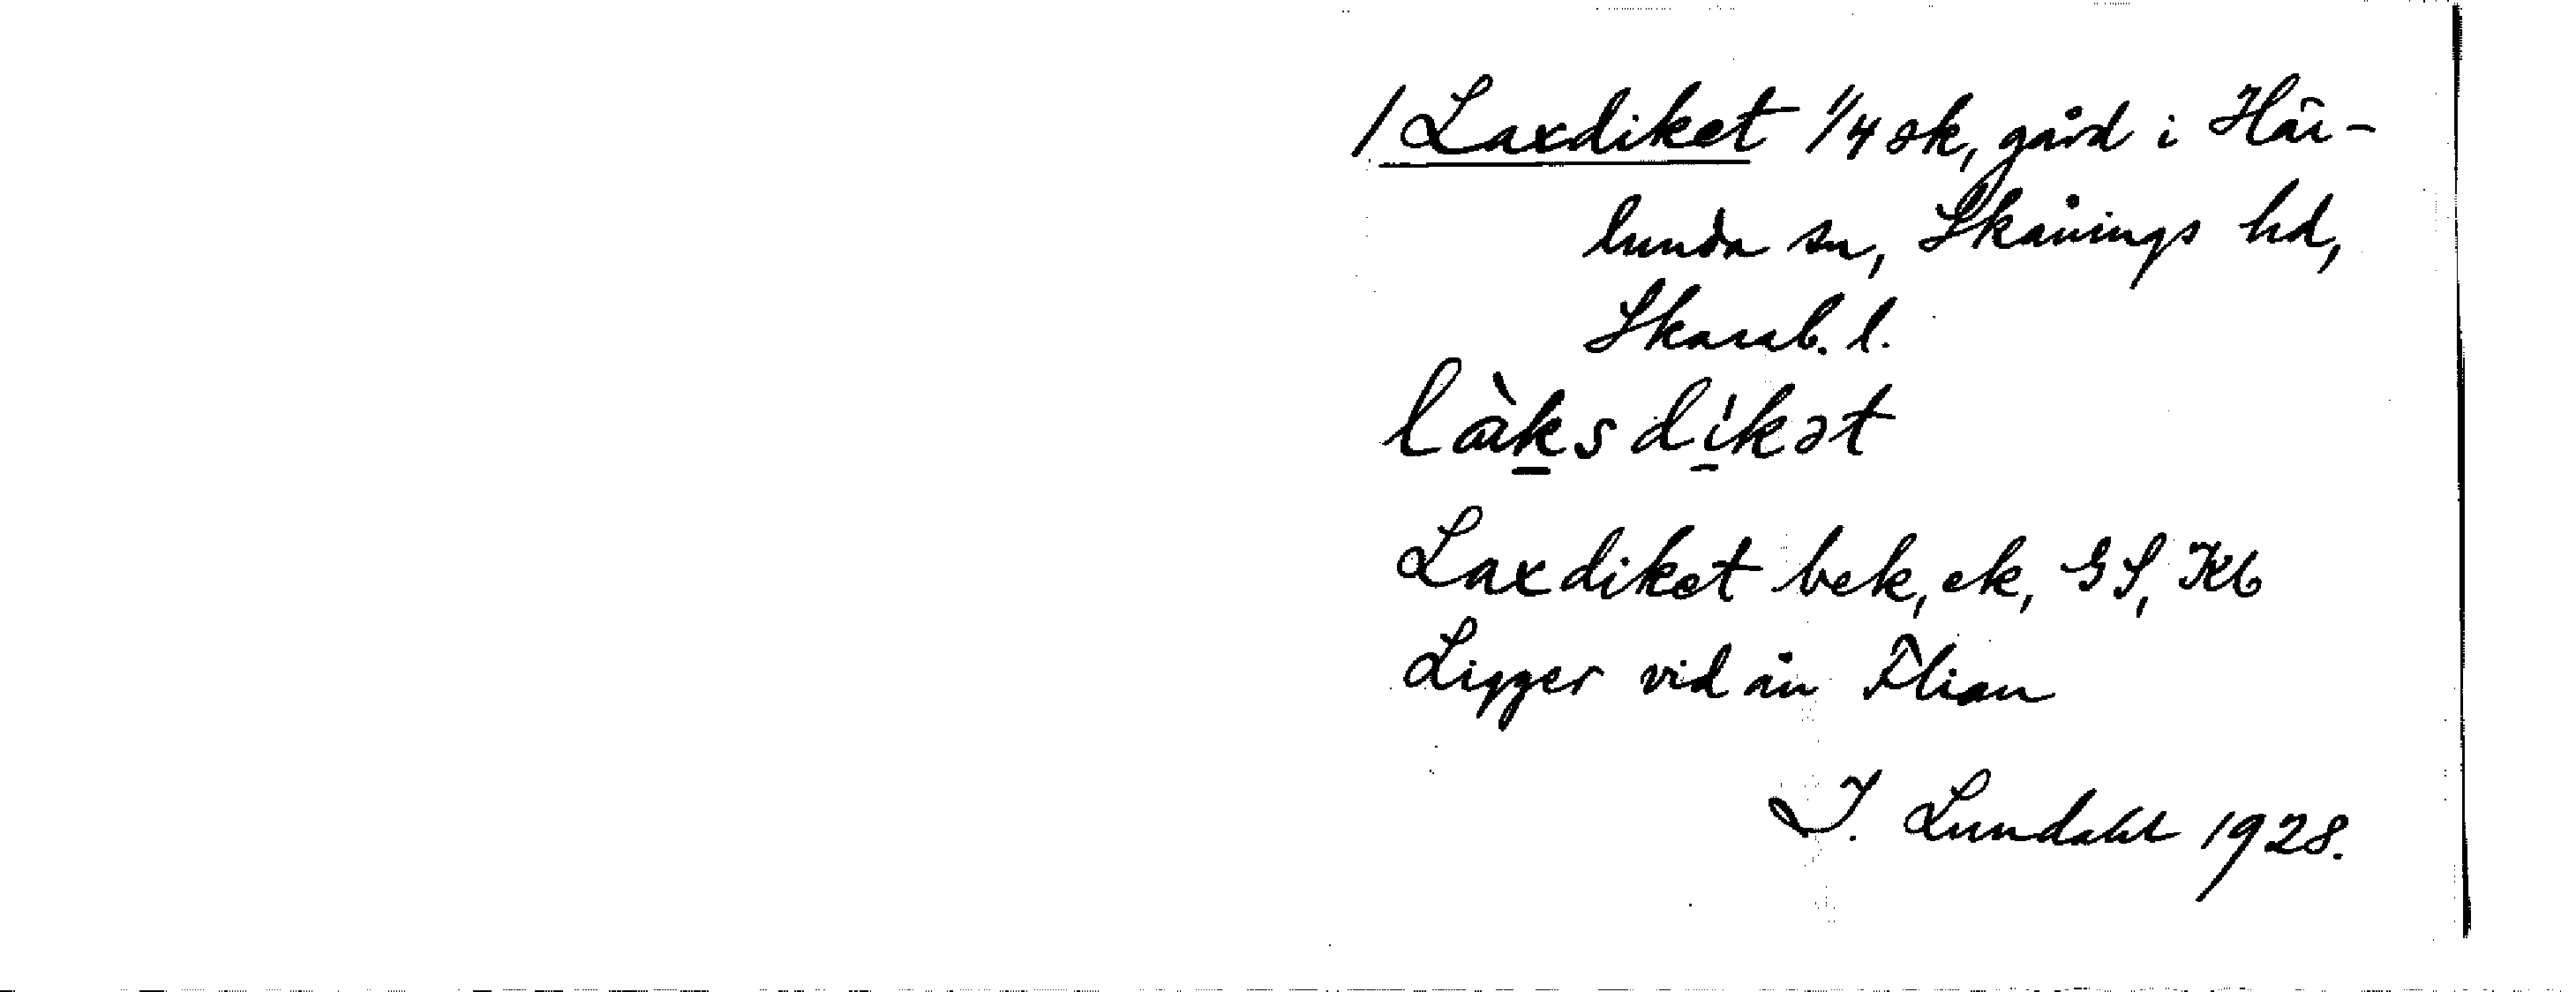 / Laxdiket 1/4 sk, gård i Här-
lunda sn, Skånings hd,
Skarab. l.
làksdi̍kət
Laxdiket bek, ek, GS, Kb
Ligger vid ån Flian
I. Lundahl 1928.